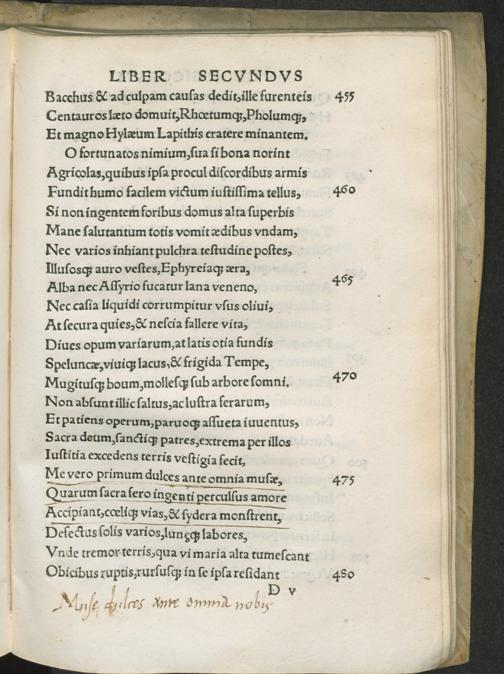 LIBER SECVNDVS
Bacchus & ad culpam causas dedit, ille furenteis 455
Centauros læto domuit, Rhœtumq;, Pholumq;,
Et magno Hylæum Lapithis cratere minantem.
O fortunatos nimium, sua si bona norint
Agricolas, quibus ipsa procul discordibus armis
Fundit humo facilem victum iustissima tellus, 460
Si non ingentem foribus domus alta superbis
Mane salutantum totis vomit ædibus vndam,
Nec varios inhiant pulchra testudine postes,
Illusosq; auro vestes, Ephyreiaq; æra,
Alba nec Assyrio fucatur lana veneno, 465
Nec casia liquidi corrumpitur vsus oliui,
At secura quies, & nescia fallere vita,
Diues opum variarum, at latis otia fundis
Speluncæ, viuiq; lacus, & frigida Tempe,
Mugitusq; boum, mollesq; sub arbore somni. 470
Non absunt illic saltus, ac lustra ferarum,
Et patiens operum, paruoq; assueta iuuentus,
Sacra deum, sanctiq; patres, extrema per illos
Iustitia excedens terris vestigia fecit,
Me vero primum dulces ante omnia musæ, 475
Quarum sacra fero ingenti perculsus amore
Accipiant, cœliq; vias, & sydera monstrent,
Defectus solis varios, lunęq; labores,
Vnde tremor terris, qua vi maria alta tumescant
Obicibus ruptis, rursusq; in se ipsa residant 480
D v
Muse dulces ante omnia nobis